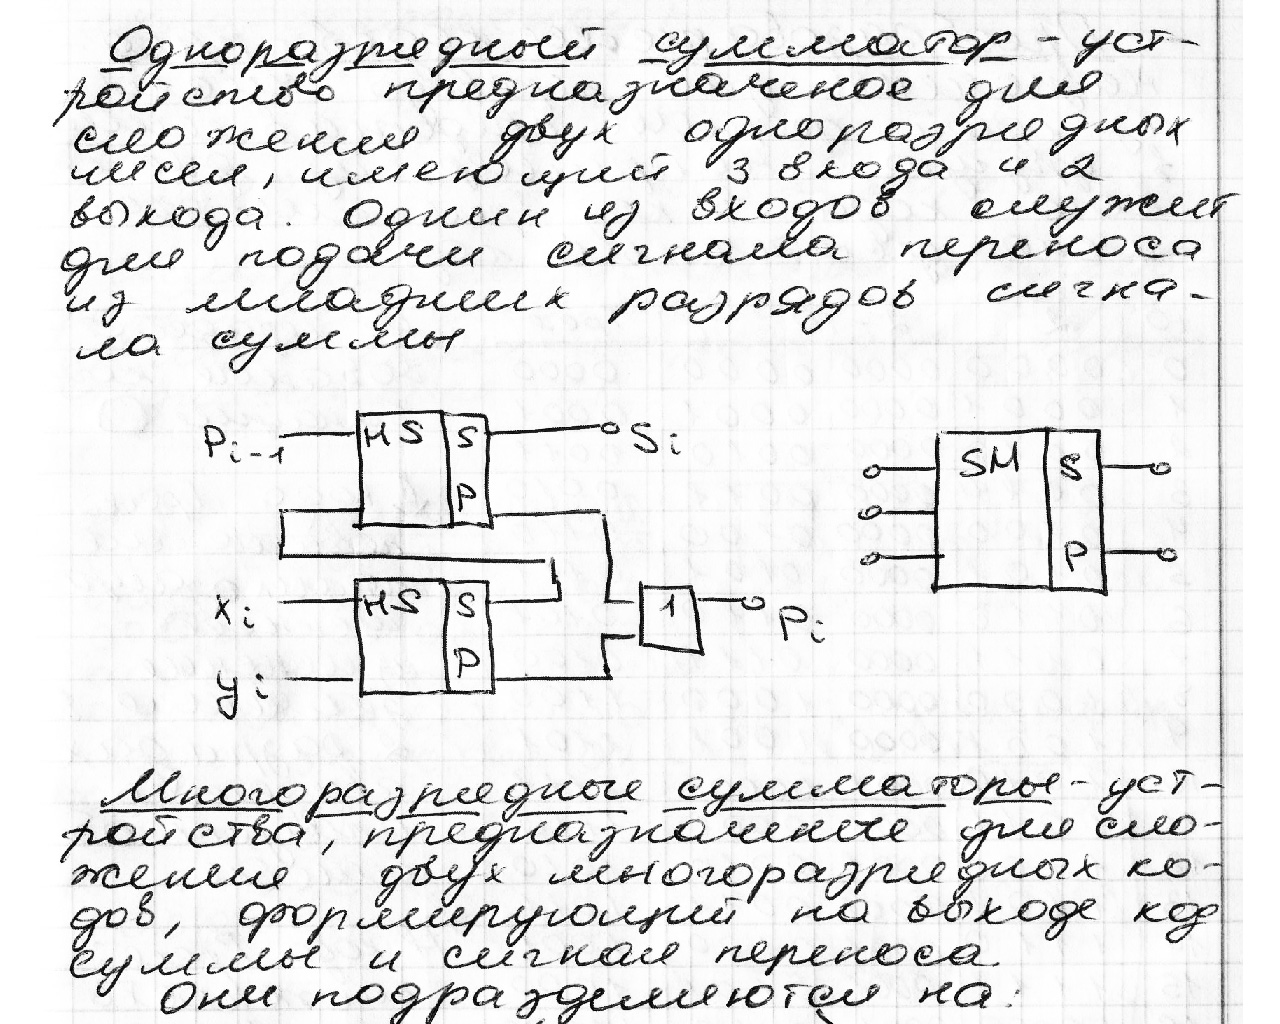 Одноразрядный сумматор - уст-
ройство предназначеное для
сложения двух одноразрядных
чисел, имеющий 3 входа и 2
выхода. Один из входов служит
для подачи сигнала переноса
из младших разрядов сигна-
ла суммы
Pi-1 HS S P Si
SM S P
xi HS S P 1 Pi
yi
Многоразрядные сумматоры - уст-
ройства, предназначение для сло-
жения двух многоразрядных ко-
дов, формирующий на выходе код
суммы и сигнал переноса.
Они подразделяются на: